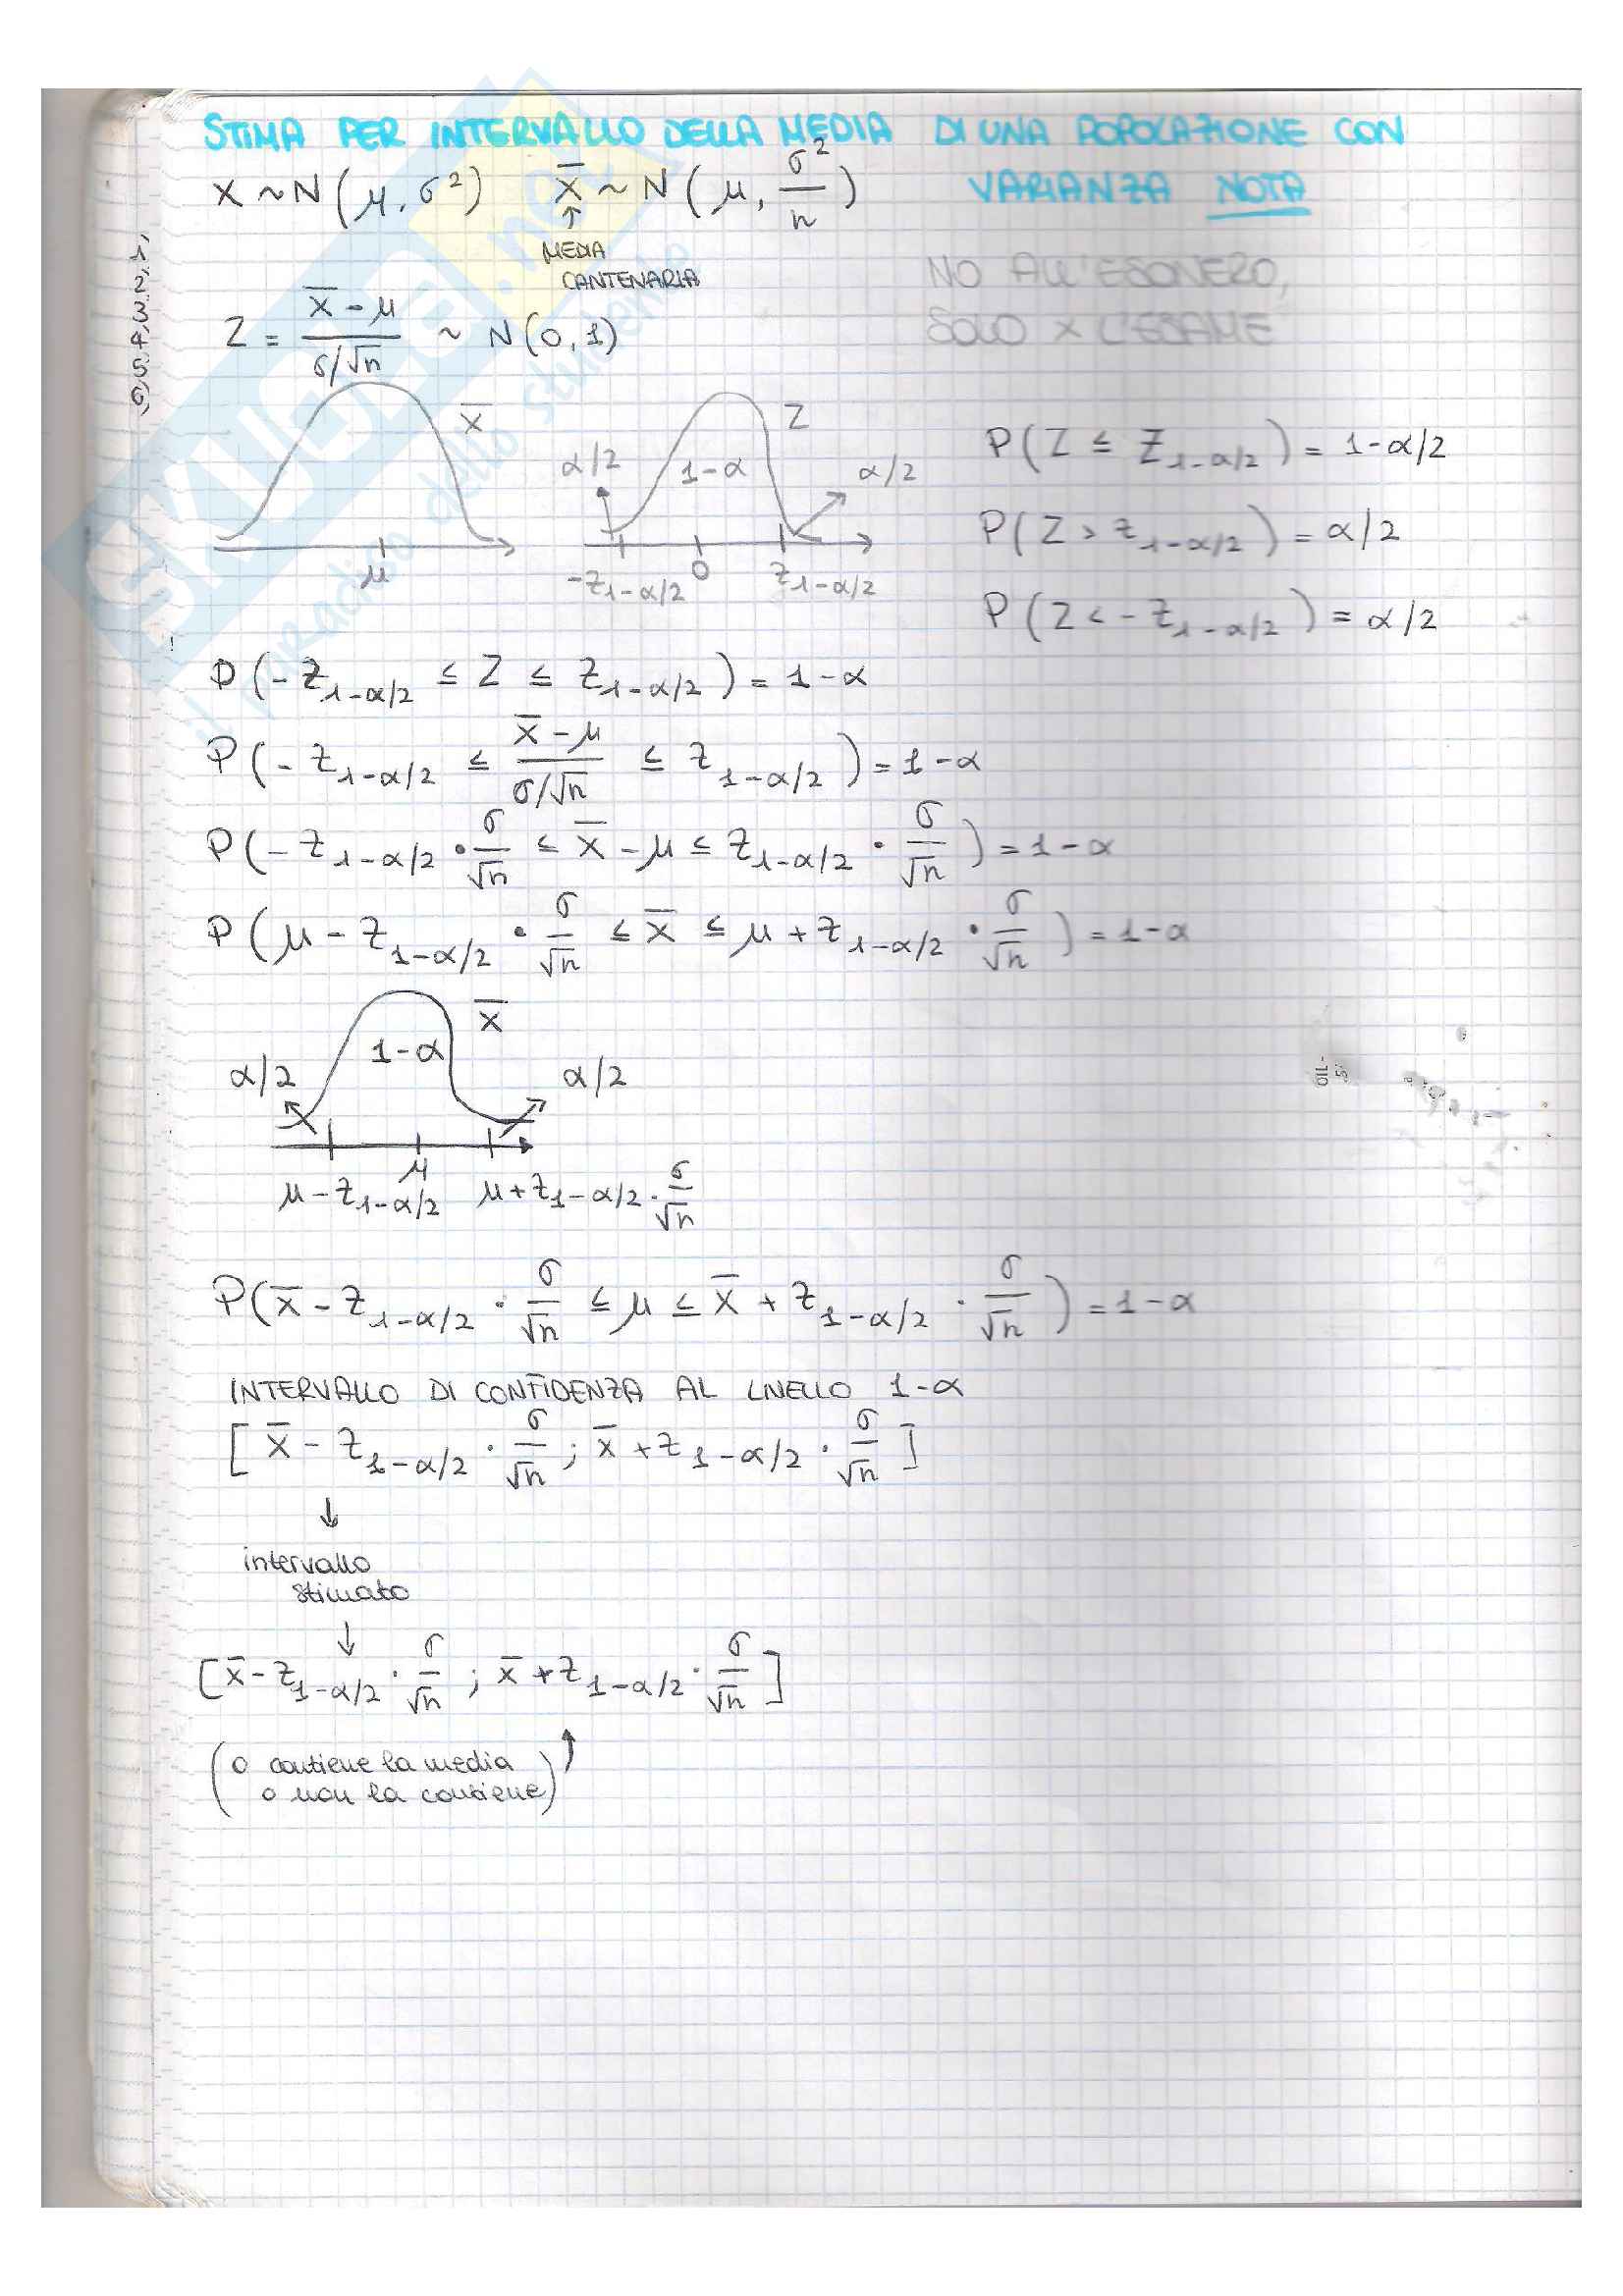 STIMA PER INTERVALLO DELLA MEDIA DI UNA POPOLAZIONE CON
VARIANZA NOTA
X ~ N(μ, σ²) X̄ ~ N(μ, σ²/n)
↑
MEDIA
CANTENARIA
NO ALL'ESONERO,
SOLO X L'ESAME
1,
2,
3,
4,
5,
6,
Z = (X̄ - μ)/(σ/√n) ~ N(0,1)
X̄
μ
Z
α/2 1-α α/2
-z₁₋α/2 0 z₁₋α/2
P(Z ≤ Z₁₋α/2) = 1-α/2
P(Z > z₁₋α/2) = α/2
P(Z < -z₁₋α/2) = α/2
P(-z₁₋α/2 ≤ Z ≤ z₁₋α/2) = 1-α
P(-z₁₋α/2 ≤ (X̄ - μ)/(σ/√n) ≤ z₁₋α/2) = 1-α
P(-z₁₋α/2 · σ/√n ≤ X̄ - μ ≤ z₁₋α/2 · σ/√n) = 1-α
P(μ - z₁₋α/2 · σ/√n ≤ X̄ ≤ μ + z₁₋α/2 · σ/√n) = 1-α
X̄
α/2 1-α α/2
μ
μ - z₁₋α/2 μ + z₁₋α/2 · σ/√n
P(X̄ - z₁₋α/2 · σ/√n ≤ μ ≤ X̄ + z₁₋α/2 · σ/√n) = 1-α
INTERVALLO DI CONFIDENZA AL LIVELLO 1-α
[X̄ - z₁₋α/2 · σ/√n ; X̄ + z₁₋α/2 · σ/√n]
↓
intervallo
stimato
↓
[x̄ - z₁₋α/2 · σ/√n ; x̄ + z₁₋α/2 · σ/√n]
(o contiene la media
o non la contiene) ↑
SKUOLA.net
il paradiso dello studente